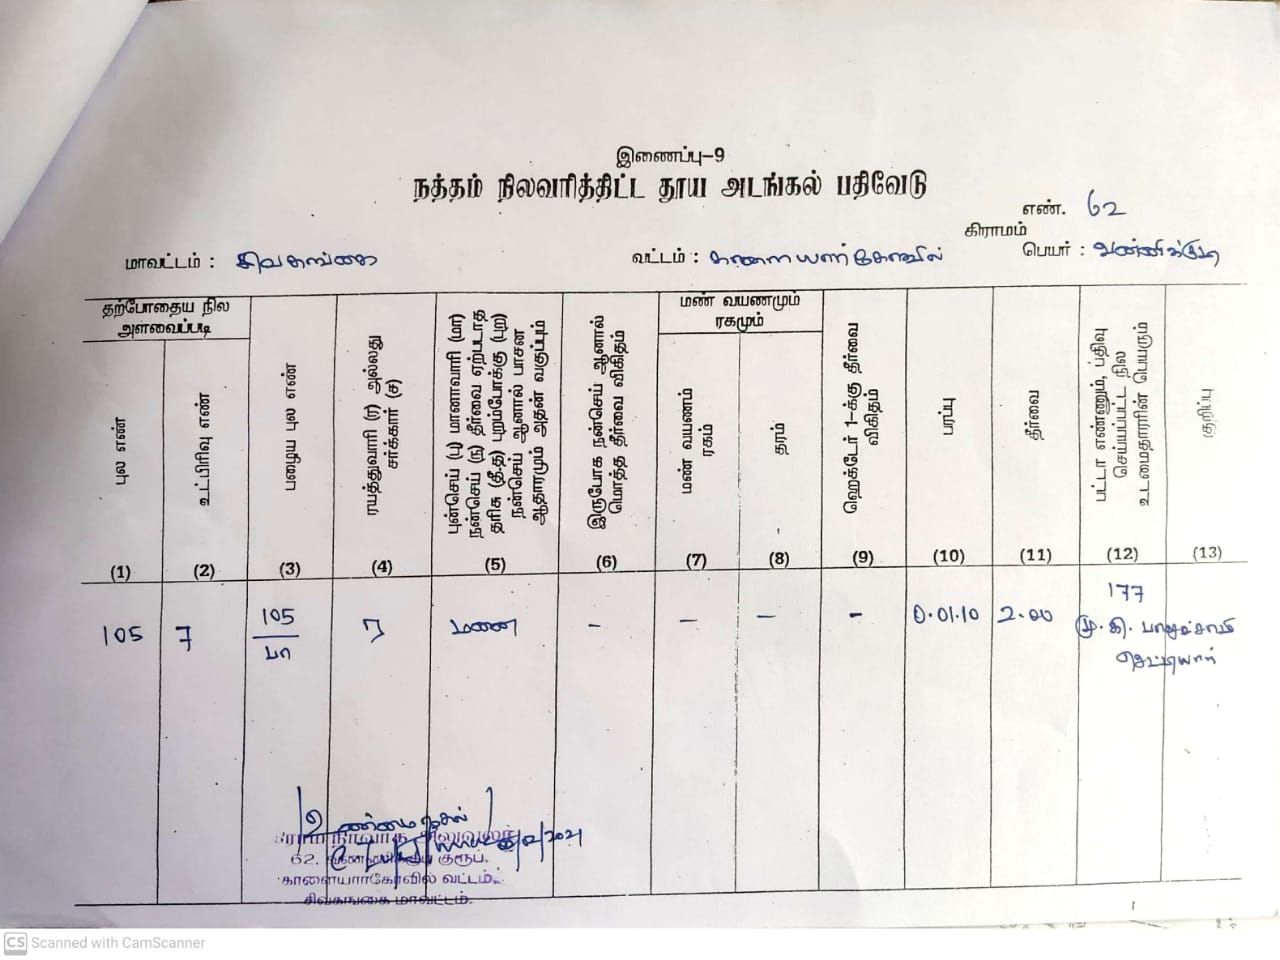 இணைப்பு-9
நத்தம் நிலவரித்திட்ட தூய அடங்கல் பதிவேடு
எண். 62
கிராமம்
மாவட்டம் : சிவகங்கை வட்டம் : காளையார்கோவில் பெயர் : வண்ணிக்குடி
தற்போதைய நில
அளவைப்படி
புல எண்
உட்பிரிவு எண்
பழைய புல எண்
ரயத்துவாரி (ர) அல்லது
சர்க்கார் (ச)
புன்செய் (பு) மானாவாரி (மா)
நன்செய் (ந) தீர்வை ஏற்படாத
தரிசு (தீ.த) புறம்போக்கு (புற)
நன்செய் ஆனால் பாசன
ஆதாரமும் அதன் வகுப்பும்
இருபோக நன்செய் ஆனால்
மொத்த தீர்வை விகிதம்
மண் வயணமும்
ரகமும்
மண் வயணம்
ரகம்
தரம்
ஹெக்டேர் 1-க்கு தீர்வை
விகிதம்
பரப்பு
தீர்வை
பட்டா எண்ணும், பதிவு
செய்யப்பட்ட நில
உடமைதாரரின் பெயரும்
குறிப்பு
(1) (2) (3) (4) (5) (6) (7) (8) (9) (10) (11) (12) (13)
105 7 105 ர மனை - - - - 0.01.10 2.00 177
பா மு. கி. பாலுச்சாமி
செட்டியார்
உண்மை நகல்
62. குரூப்.
காளையார்கோவில் வட்டம்.
சிவகங்கை மாவட்டம்.
CS Scanned with CamScanner